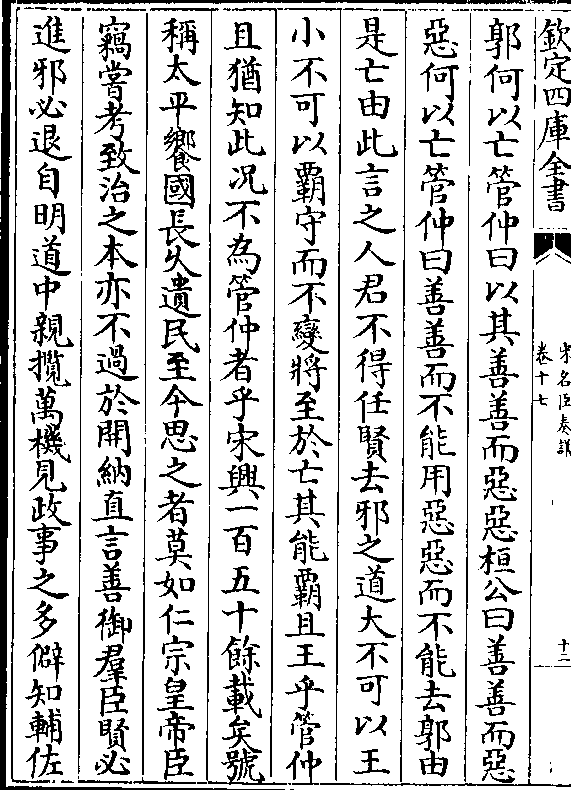 欽定四庫全書
宋名臣奏議
卷十七
十二
郭何以亡管仲曰以其善善而惡惡桓公曰善善而惡
惡何以亡管仲曰善善而不能用惡惡而不能去郭由
是亡由此言之人君不得任賢去邪之道大不可以王
小不可以霸守而不變將至於亡其能霸且王乎管仲
且猶知此况不為管仲者乎宋興一百五十餘載矣號
稱太平饗國長久遺民至今思之者莫如仁宗皇帝臣
竊嘗考致治之本亦不過於開納直言善御羣臣賢必
進邪必退自明道中親攬萬機見政事之多僻知輔佐